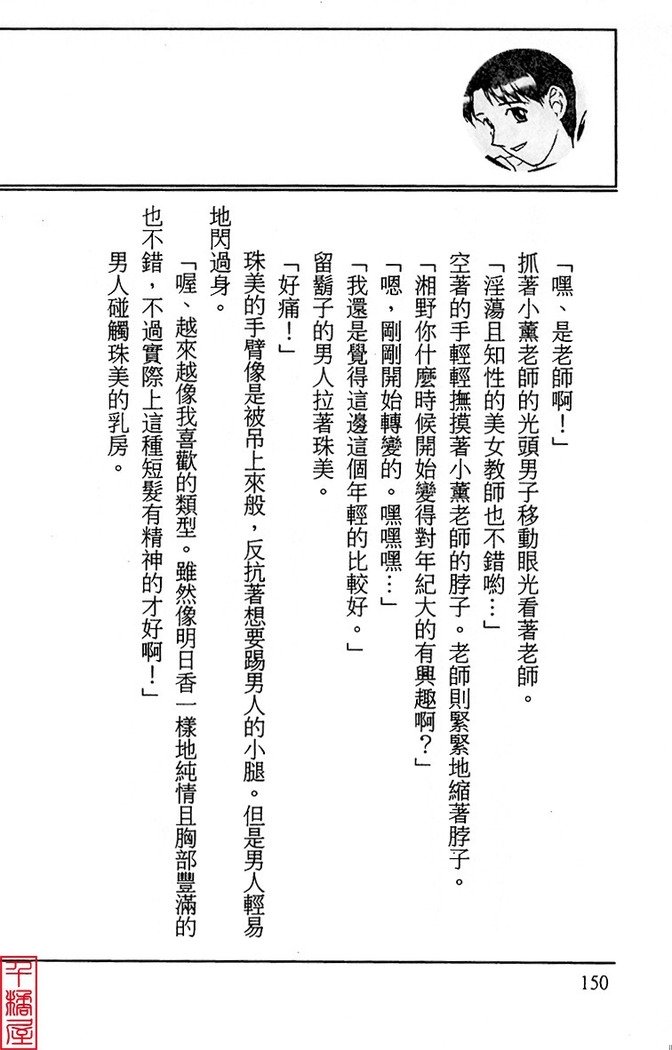 「嘿、是老師啊！」
抓著小薰老師的光頭男子移動眼光看著老師。
「淫蕩且知性的美女教師也不錯喲…」
空著的手輕輕撫摸著小薰老師的脖子。老師則緊緊地縮著脖子。
「湘野你什麼時候開始變得對年紀大的有興趣啊？」
「嗯，剛剛開始轉變的。嘿嘿嘿…」
「我還是覺得這邊這個年輕的比較好。」
留鬍子的男人拉著珠美。
「好痛！」
珠美的手臂像是被吊上來般，反抗著想要踢男人的小腿。但是男人輕易
地閃過身。
「喔、越來越像我喜歡的類型。雖然像明日香一樣地純情且胸部豐滿的
也不錯，不過實際上這種短髮有精神的才好啊！」
男人碰觸珠美的乳房。
150
千橘屋